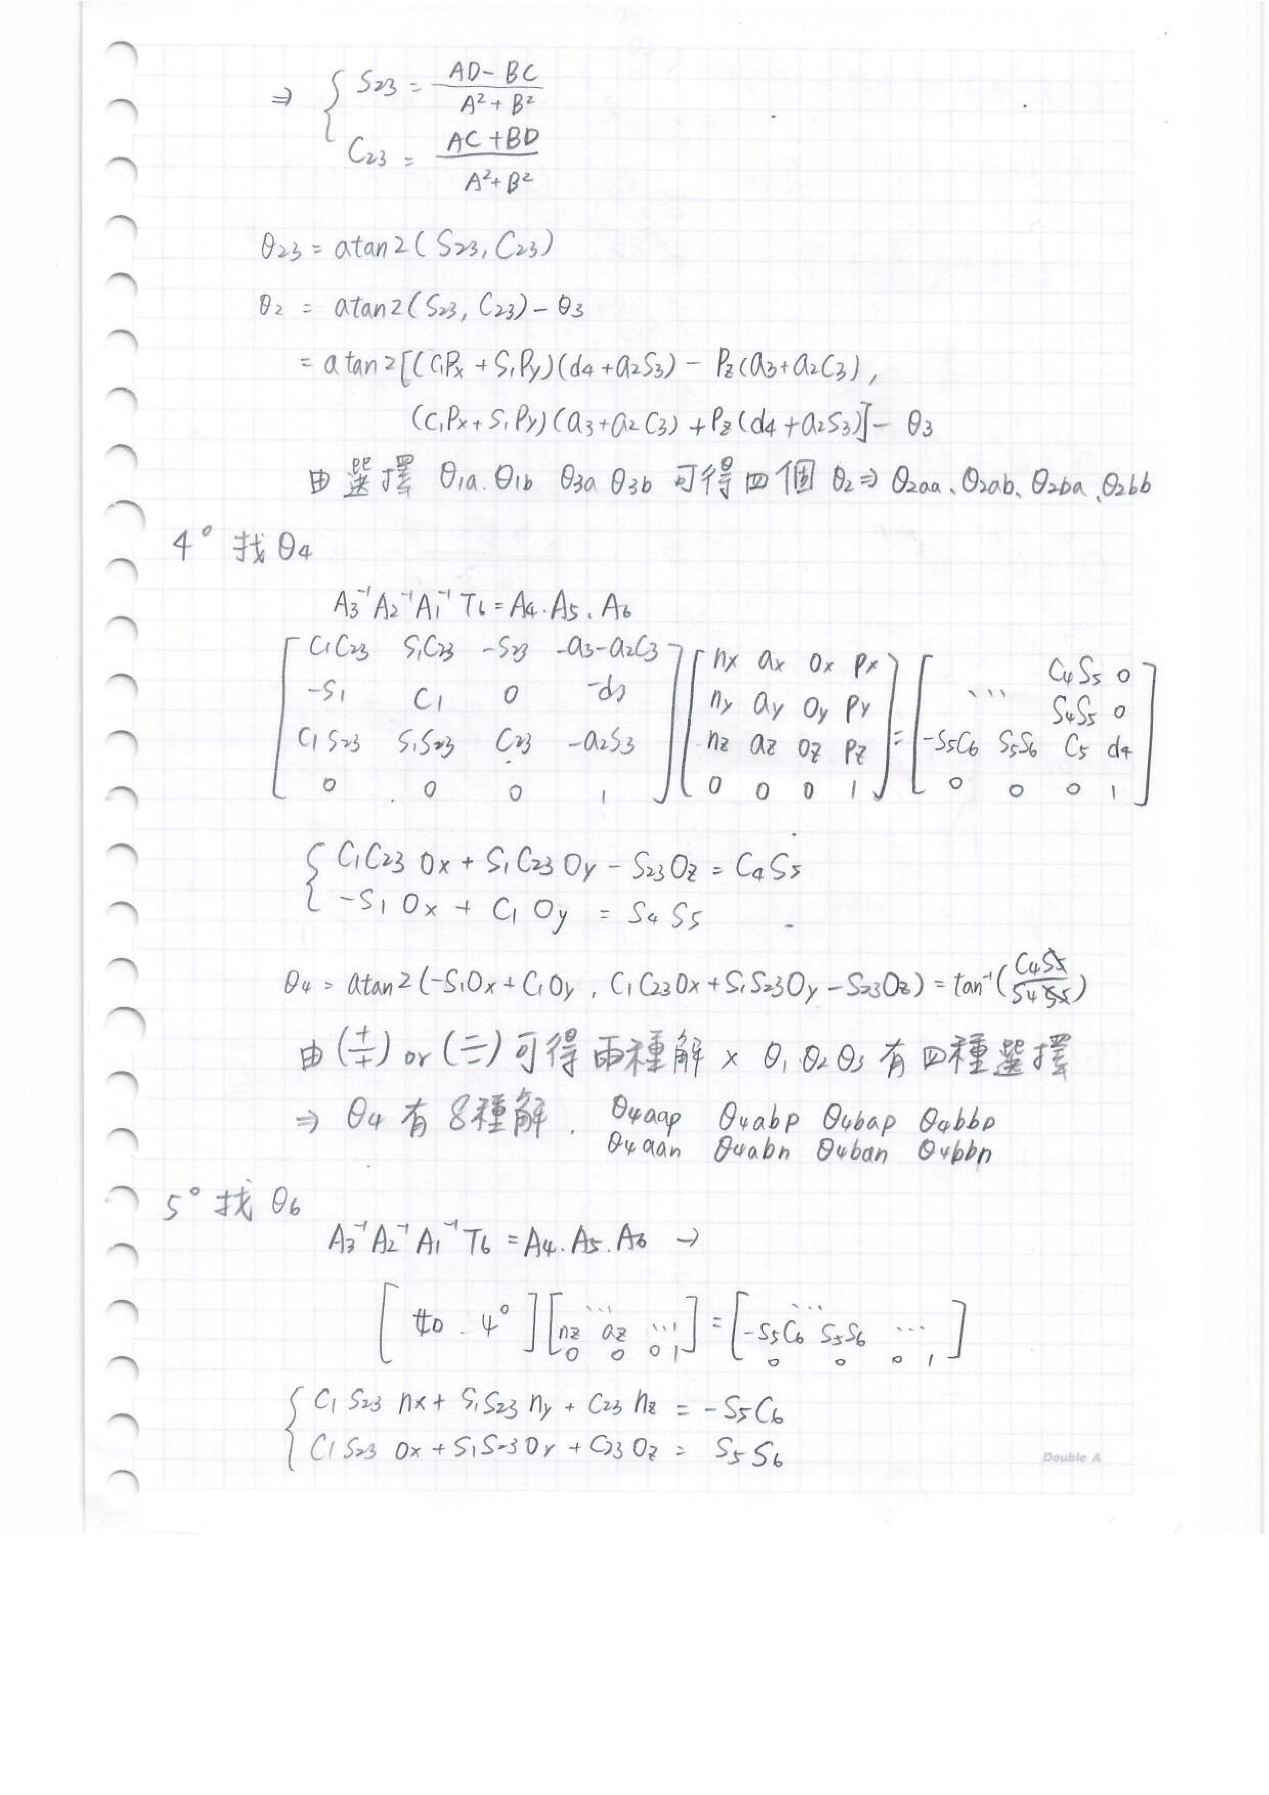 ⇒ { S23 = (AD - BC) / (A² + B²)
C23 = (AC + BD) / (A² + B²)
θ23 = atan2(S23, C23)
θ2 = atan2(S23, C23) - θ3
= atan2[(C1Px + S1Py)(d4 + a2S3) - Pz(a3 + a2C3),
(C1Px + S1Py)(a3 + a2C3) + Pz(d4 + a2S3)] - θ3
由選擇 θ1a. θ1b θ3a θ3b 可得四個 θ2 ⇒ θ2aa、θ2ab、θ2ba、θ2bb
4° 找 θ4
A3⁻¹A2⁻¹A1⁻¹T6 = A4.A5.A6
[ C1C23 S1C23 -S23 -a3-a2C3 ] [ nx ax ox px ] = [ C4S5 0 ]
[ -S1 C1 0 -d3 ] [ ny ay oy py ] [ ... S4S5 0 ]
[ C1S23 S1S23 C23 -a2S3 ] [ nz az oz pz ] = [ -S5C6 S5S6 C5 d4 ]
[ 0 0 0 1 ] [ 0 0 0 1 ] [ 0 0 0 1 ]
{ C1C23 Ox + S1C23 Oy - S23Oz = C4S5
-S1 Ox + C1 Oy = S4 S5
θ4 = atan2(-S1Ox + C1Oy , C1C23Ox + S1S23Oy - S23Oz) = tan⁻¹(C4S5 / S4S5)
由(+/+) or (-/-) 可得兩種解 × θ1 θ2 θ3 有四種選擇
⇒ θ4 有 8種解. θ4aap θ4abp θ4bap θ4bbp
θ4aan θ4abn θ4ban θ4bbn
5° 找 θ6
A3⁻¹A2⁻¹A1⁻¹T6 = A4.A5.A6 →
[ 如 4° ] [ ... nz az ... 0 0 0 1 ] = [ ... -S5C6 S5S6 ... 0 0 0 1 ]
{ C1 S23 nx + S1S23 ny + C23 nz = -S5C6
C1 S23 Ox + S1S23 Oy + C23 Oz = S5 S6
Double A